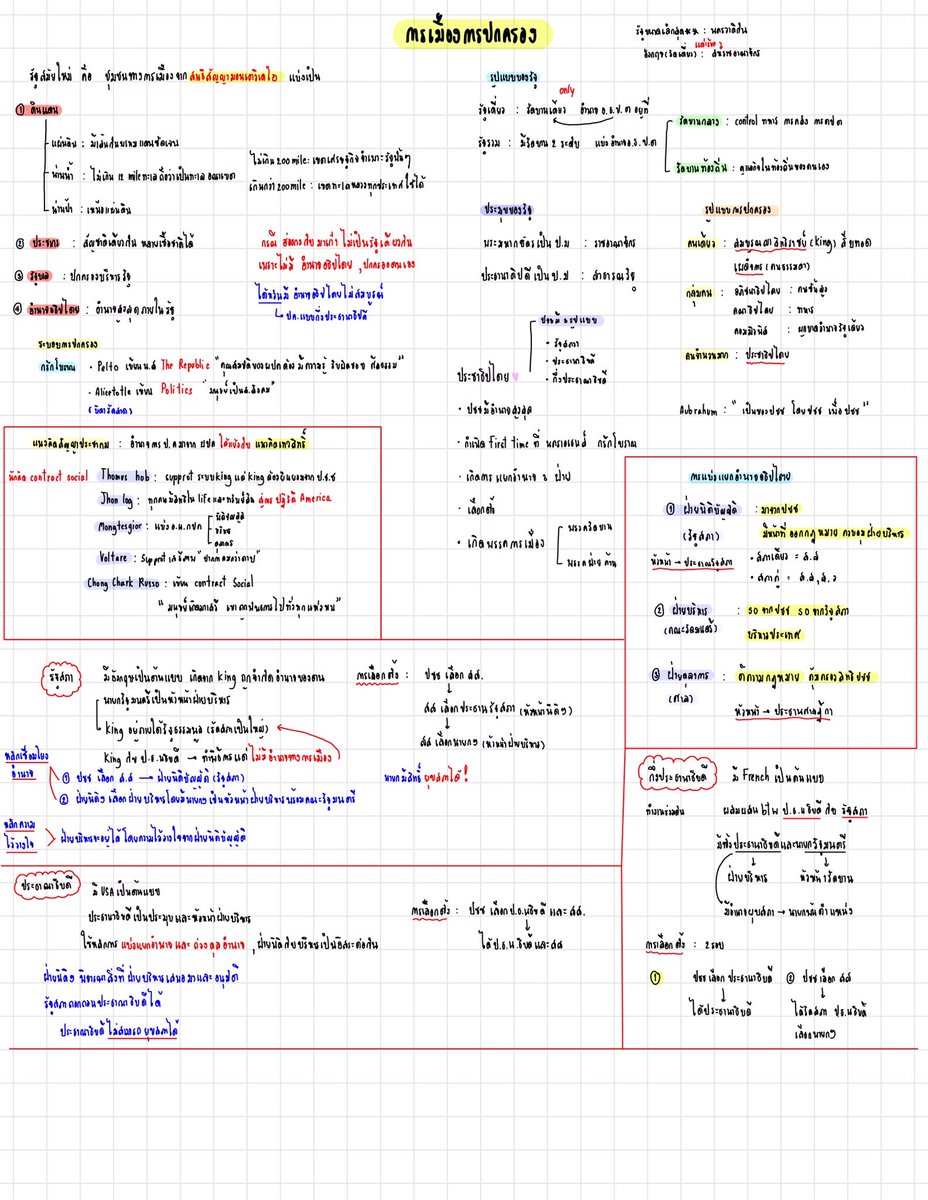 การเมืองการปกครอง
รัฐขนาดเล็กสุด : นครวาติกัน
อังกฤษ(รัฐเดี่ยว) : สหราชอาณาจักร
รัฐสมัยใหม่ คือ ชุมชนทางการเมืองจาก สนธิสัญญา แบ่งเป็น
① ดินแดน
แผ่นดิน : มีเส้นพรมแดนชัดเจน
น่านน้ำ : ไม่เกิน 12 mile ทะเล ถือว่าเป็นทะเล อาณาเขต
ไม่เกิน 200 mile : เขตเศรษฐกิจจำเพาะ รัฐนั้นๆ
เกินกว่า 200 mile : เขตทะเลหลวงทุกประเทศใช้ได้
น่านฟ้า : เหนือแผ่นดิน
② ประชากร : สัญชาติเดียวกัน หลายเชื้อชาติได้
③ รัฐบาล : ปกครองบริหารรัฐ
④ อำนาจอธิปไตย : อำนาจสูงสุดภายในรัฐ
กรณี ฮ่องกงกับมาเก๊า ไม่เป็นรัฐเดียวกัน
เพราะไม่มี อำนาจอธิปไตย , ปกครองตนเอง
ไต้หวันมี อำนาจอธิปไตยไม่สมบูรณ์
ปค.แบบกึ่งประธานาธิบดี
รูปแบบของรัฐ
only
รัฐเดี่ยว : รัฐบาลเดียว อำนาจ อ.ธ.ป.ต อยู่ที่
รัฐรวม : มีรัฐบาล 2 ระดับ แบ่งอำนาจ อ.ธ.ป.ต
รัฐบาลกลาง : control ทหาร การคลัง การตปต
รัฐบาลท้องถิ่น : ดูแลกิจในท้องถิ่นของตนเอง
ประมุขของรัฐ
พระมหากษัตริย์เป็น ป.ม : ราชอาณาจักร
ประธานาธิบดีเป็น ป.ม : สาธารณรัฐ
รูปแบบการปกครอง
คนเดียว : สมบูรณาญาสิทธิราชย์ (king) สืบทอด
เผด็จการ (คนธรรมดา)
กลุ่มคน : อภิชนาธิปไตย : คนชั้นสูง
คณาธิปไตย : ทหาร
คอมมิวนิสต์ : ผูกขาดอำนาจรัฐเดียว
คนจำนวนมาก : ประชาธิปไตย
ระบอบการปกครอง
กรีกโบราณ • Palto เขียน น.ส The Republic "คุณสมบัติของผู้ปกครองต้องมีความรู้ รับผิดชอบ ศีลธรรม"
• Alicetotle เขียน Politics "มนุษย์เป็นส.สังคม"
(บิดารัฐศาสตร์)
ประชาธิปไตย ♥
ปชตมี 3 รูปแบบ
• รัฐสภา
• ประธานาธิบดี
• กึ่งประธานาธิบดี
• ปชชมีอำนาจสูงสุด
• กำเนิด First time ที่ นครเอเธนส์ กรีกโบราณ
• เกิดการแยกอำนาจ 3 ฝ่าย
• เลือกตั้ง
• เกิดพรรคการเมือง
พรรครัฐบาล
พรรคฝ่ายค้าน
Aubrahum : " เป็นของปชช โดยปชช เพื่อปชช "
แนวคิดสัญญาประชาคม : อำนาจการ ป.ค มาจาก มปต โต้แย้งกับ แนวคิดเทวสิทธิ์
นักคิด contract social
Thomus hob : supprot ระบบking แต่ king ต้องยินยอมจาก ป.ช.ช
Jhon log : ทุกคนมีสิทธิใน life และทรัพย์สิน สู่การปฏิวัติ America
Mongtesgior : แบ่ง อ.น.กปค
นิติบัญญัติ
บริหาร
ตุลาการ
Voltare : Supprot เสรีภาพ
Chong Chark Russo : เขียน contract Social
การแบ่งแยกอำนาจอธิปไตย
① ฝ่ายนิติบัญญัติ : มาจากปชช
(รัฐสภา) มีหน้าที่ ออกกฎหมาย ควบคุมฝ่ายบริหาร
หัวหน้า → ประธานรัฐสภา • สภาเดียว = ส.ส
• สภาคู่ = ส.ส, ส.ว
② ฝ่ายบริหาร : 50 จากปชช 50 จากรัฐสภา
(คณะรัฐมนตรี) บริหารประเทศ
③ ฝ่ายตุลาการ : ตีความกฎหมาย คุ้มครองสิทธิปชช
(ศาล) หัวหน้า → ประธานศาลฎีกา
รัฐสภา
มีอังกฤษเป็นต้นแบบ เกิดจาก King ถูกจำกัดอำนาจของตน
นายกรัฐมนตรีเป็นหัวหน้าฝ่ายบริหาร
King อยู่ภายใต้รัฐธรรมนูญ (รัฐสภาเป็นใหญ่)
King กับ ป.ธ.นธบดี → ทำพิธีการแต่ ไม่มีอำนาจทางการเมือง
หลักเชื่อมโยงอำนาจ
① ปชช เลือก ส.ส → ฝ่ายนิติบัญญัติ (รัฐสภา)
② ฝ่ายนิติฯ เลือกฝ่ายบริหารโดยมีนายกฯเป็นหัวหน้าฝ่ายบริหารพร้อมคณะรัฐมนตรี
หลักความไว้วางใจ ฝ่ายบริหารจะอยู่ได้ โดยความไว้วางใจจากฝ่ายนิติบัญญัติ
การเลือกตั้ง : ปชช เลือก สส.
↓
สส เลือกประธานรัฐสภา (หัวหน้านิติฯ)
↓
สส เลือกนายกฯ (หัวหน้าฝ่ายบริหาร)
นายกมีสิทธิ์ ยุบสภาได้!
ประธานาธิบดี
มี USA เป็นต้นแบบ
ประธานาธิบดีเป็นประมุขและหัวหน้าฝ่ายบริหาร
ใช้หลักการ แบ่งแยกอำนาจ และ ถ่วงดุลอำนาจ , ฝ่ายนิติกับบริหารเป็นอิสระต่อกัน
ฝ่ายนิติฯ พิจารณาสิ่งที่ฝ่ายบริหารเสนอมาและ อนุมัติ
รัฐสภาถอดถอนประธานาธิบดีได้
ประธานาธิบดี ไม่สามารถยุบสภาได้
การเลือกตั้ง : ปชช เลือก ป.ธ.นธิบดี และ สส.
↓
ได้ ป.ธ.นธิบดี และ สส
กึ่งประธานาธิบดี
มี French เป็นต้นแบบ
ทำงานร่วมกัน ผสมผสาน b/w ป.ธ.นธิบดี กับ รัฐสภา
มีทั้งประธานาธิบดีและนายกรัฐมนตรี
ฝ่ายบริหาร หัวหน้ารัฐบาล
มีอำนาจยุบสภา → นายกพ้นตำแหน่ง
การเลือกตั้ง : 2 รอบ
① ปชช เลือก ประธานาธิบดี
↓
ได้ประธานาธิบดี
② ปชช เลือก สส
↓
ได้รัฐสภา ปธ.นธิบดี
เลือกนายกฯ